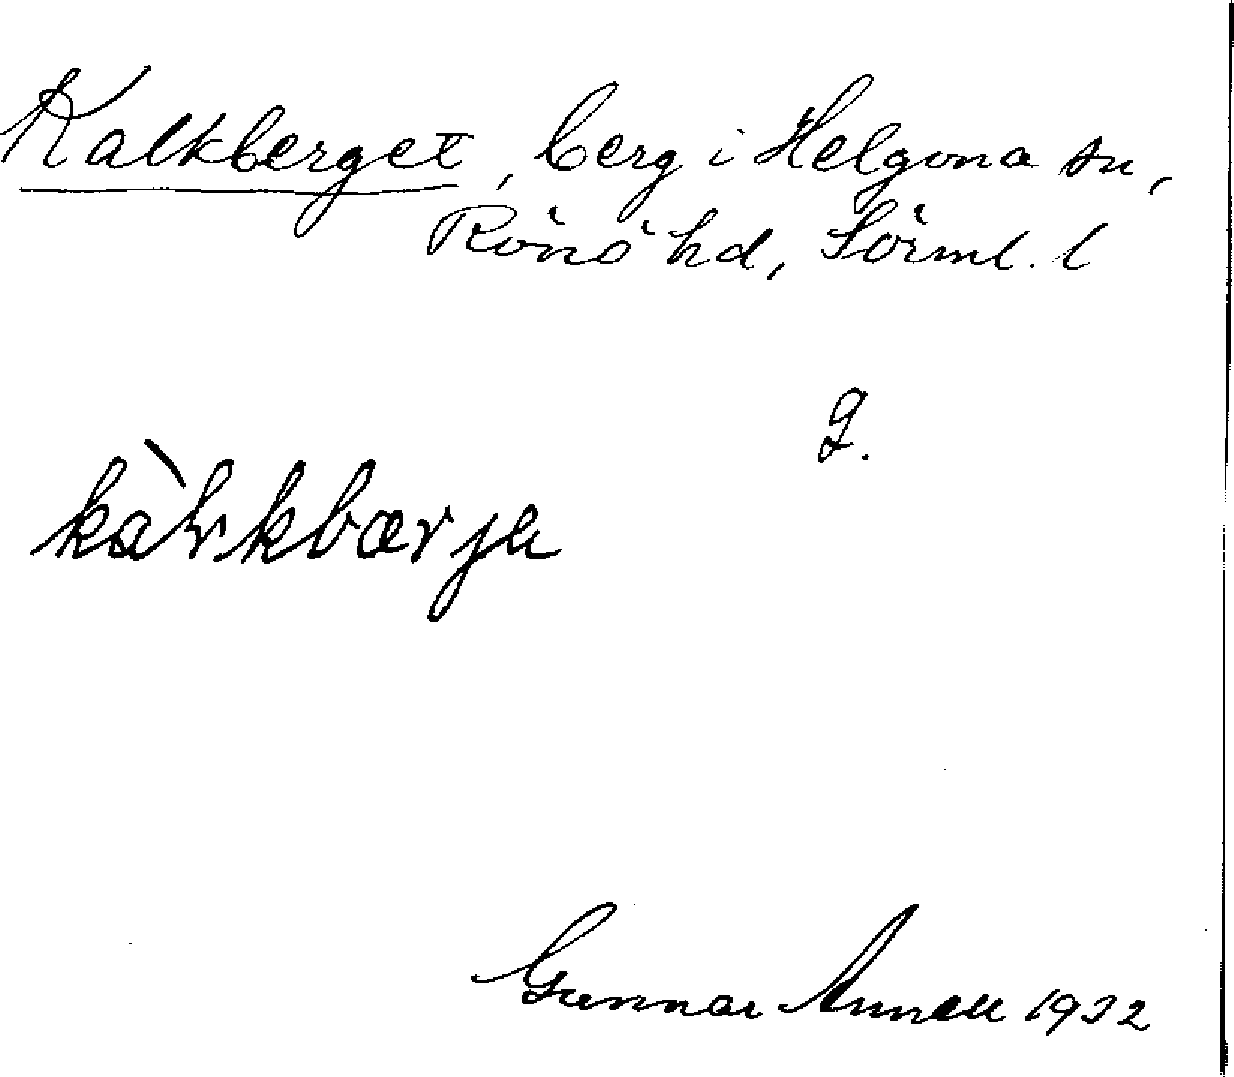 Kalkberget, berg i Helgona sn,
Rönö hd, Sörml. l
G.
kàlkbærja
Gunnar Annell 1932